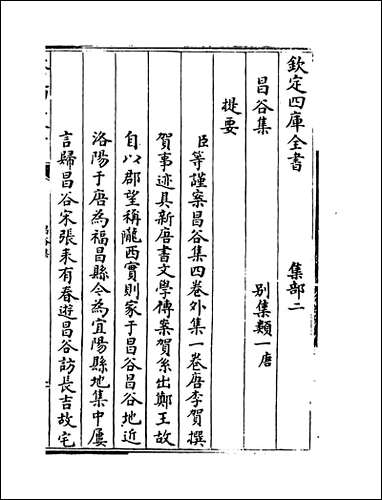 欽定四庫全書
集部二
昌谷集
別集類一唐
提要
臣等謹案昌谷集四卷外集一卷唐李賀撰
賀事迹具新唐書文學傳案賀系出鄭王故
自以郡望稱隴西實則家于昌谷昌谷地近
洛陽于唐為福昌縣今為宜陽縣地集中屢
言歸昌谷宋張耒有春遊昌谷訪長吉故宅